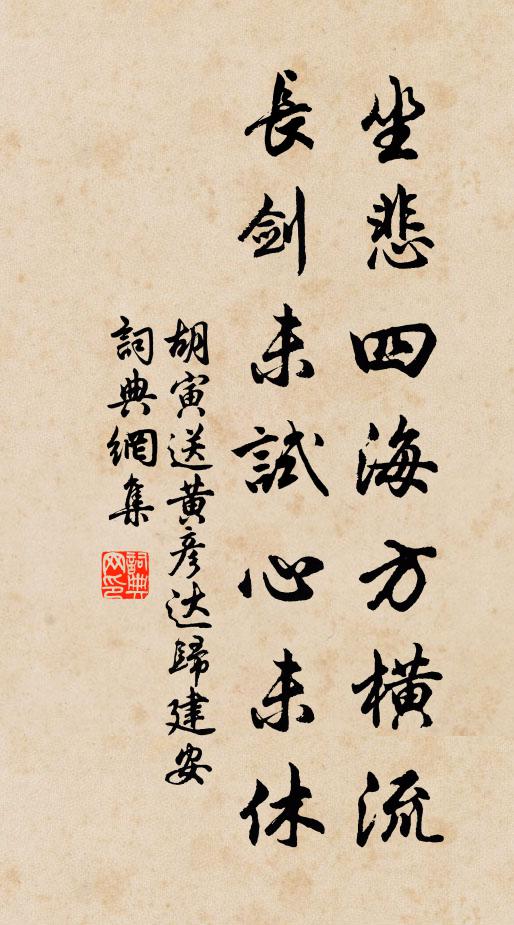 坐悲四海方横流
長劍未試心未休
胡寅送黄彦达歸建安
詞典網集
詞典网印